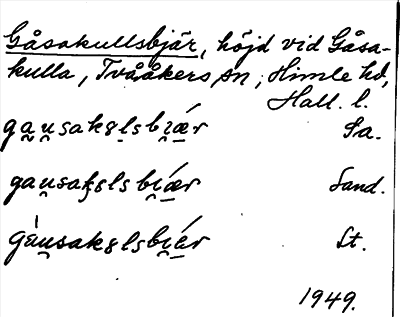 Gåsakullsbjär, höjd vid Gåsa-
kulla, Tvååkers sn, Himle hd,
Hall. l.
ga̰ṵsakslsbɪ̯ǽr Sa.
gaṵsakslsbɪ̯ǽr Sand.
gàṵsakslsbɪ̯ǽr St.
1949.